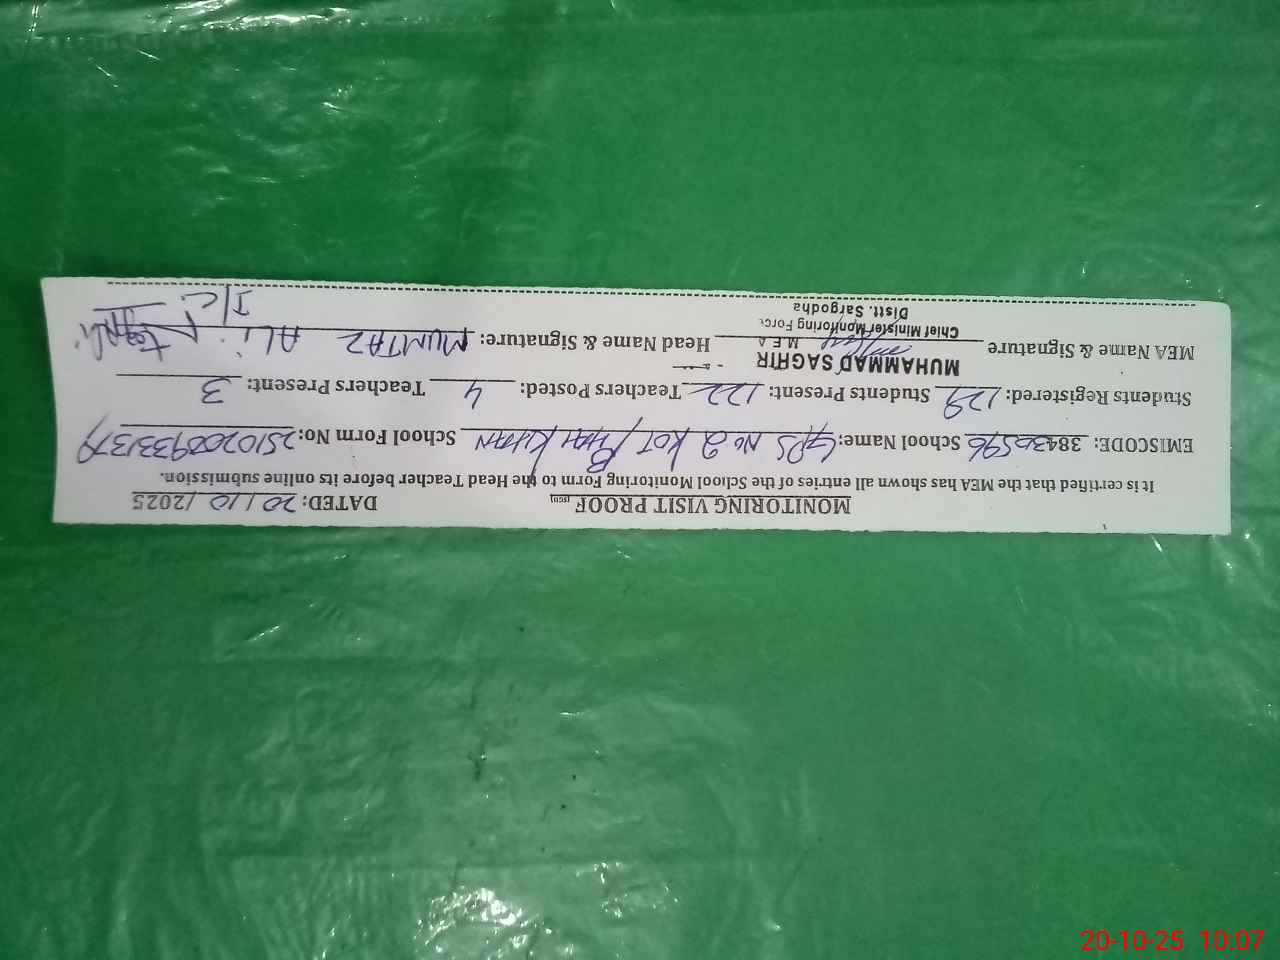 MONITORING VISIT PROOF DATED: 20/10/2025
It is certified that the MEA has shown all entries of the School Monitoring Form to the Head Teacher before its online submission.
EMISCODE: 38430596 School Name: GPS No 2 KOT BHAI KHAN School Form No:
Students Registered: 129 Students Present: 122 Teachers Posted: 4 Teachers Present: 3
MEA Name & Signature MUHAMMAD SAGHIR Head Name & Signature: MUMTAZ ALI
M E A I/C
Chief Minister Monitoring Force
Distt. Sargodha
20-10-25 10:07